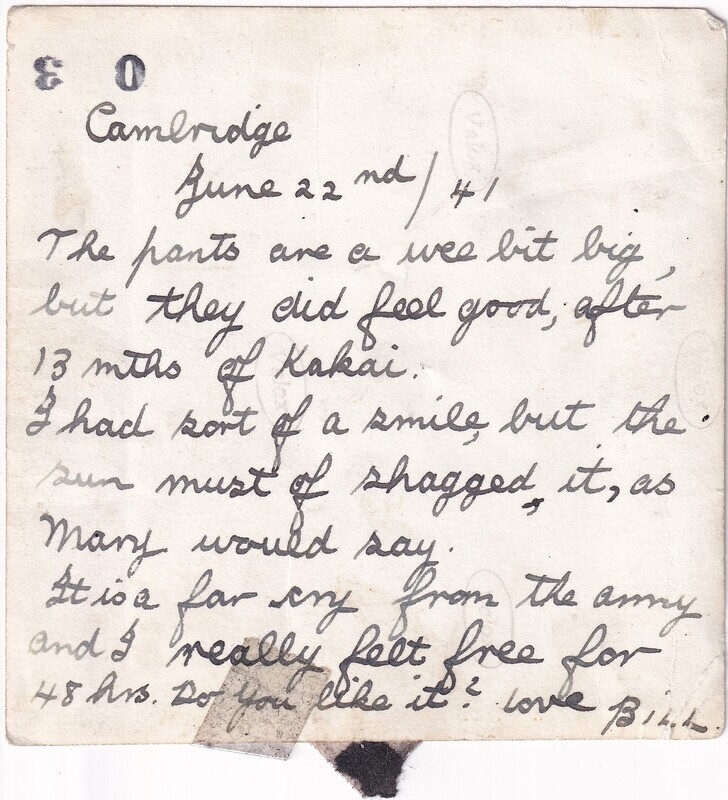 30
Cambridge
June 22nd/41
The pants are a wee bit big,
but they did feel good, after
13 mths of Kakai.
I had sort of a smile, but the
sun must of shagged, it, as
Mary would say.
It is a far cry from the army
and I really felt free for
48 hrs. Do you like it? love Bill
Velox
Velox